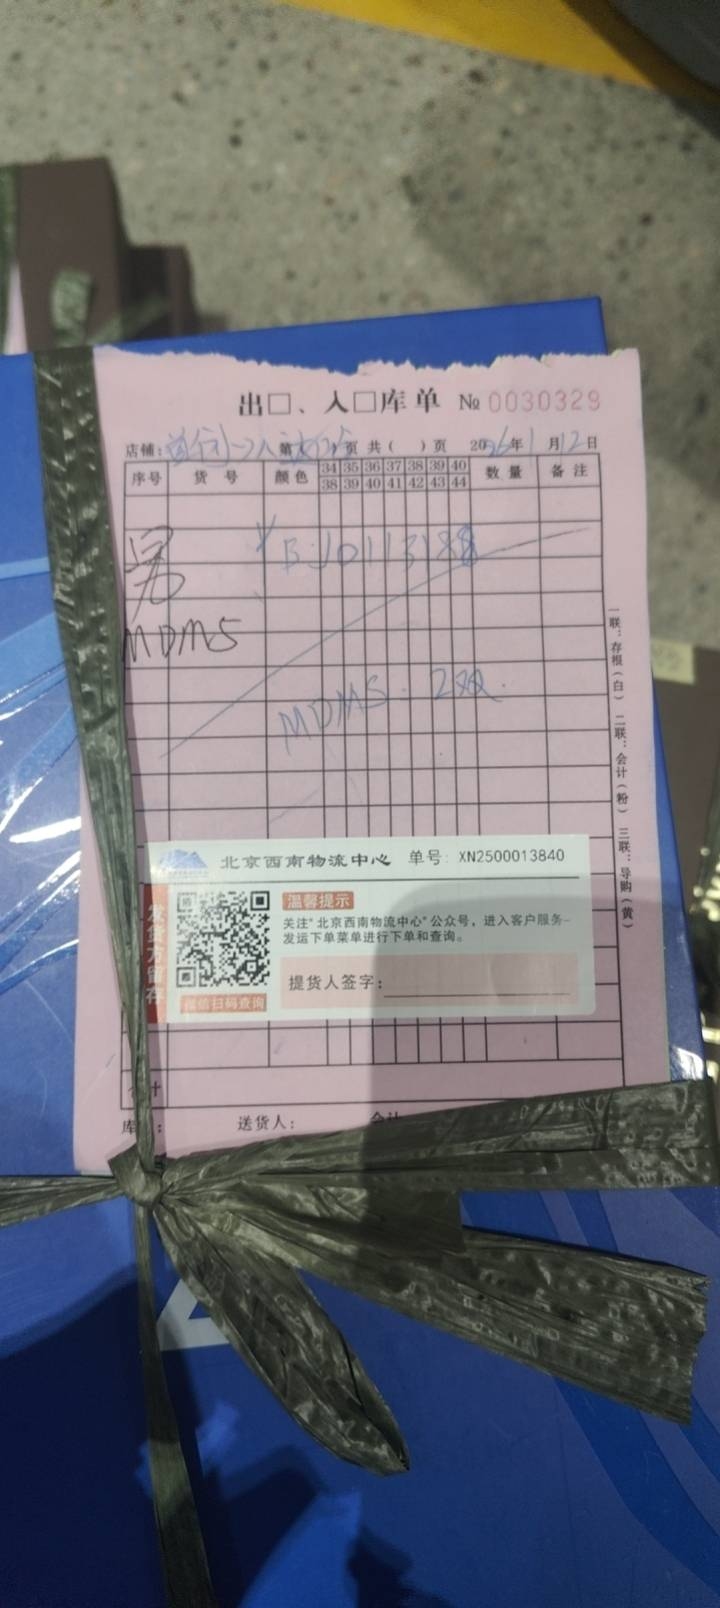 出□、入□库单 № 0030329
店铺: 第 页 共( )页 2026年1月12日
序号 货号 颜色 34 35 36 37 38 39 40 数量 备注
38 39 40 41 42 43 44
男
BJ0113188
MDMS
MDMS. 2双.
一联：存根（白） 二联：会计（粉） 三联：导购（黄）
北京西南物流中心 单号: XN2500013840
发货方留存
温馨提示
关注"北京西南物流中心"公众号，进入客户服务-
发运下单菜单进行下单和查询。
提货人签字:
微信扫码查询
计
库
送货人: